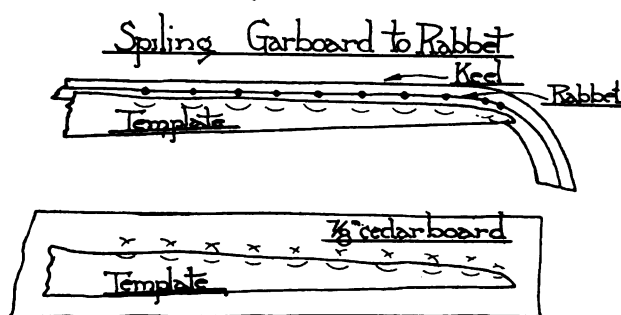 Spiling Garboard to Rabbet
Keel
Rabbet
Template
7/8" cedar board
Template